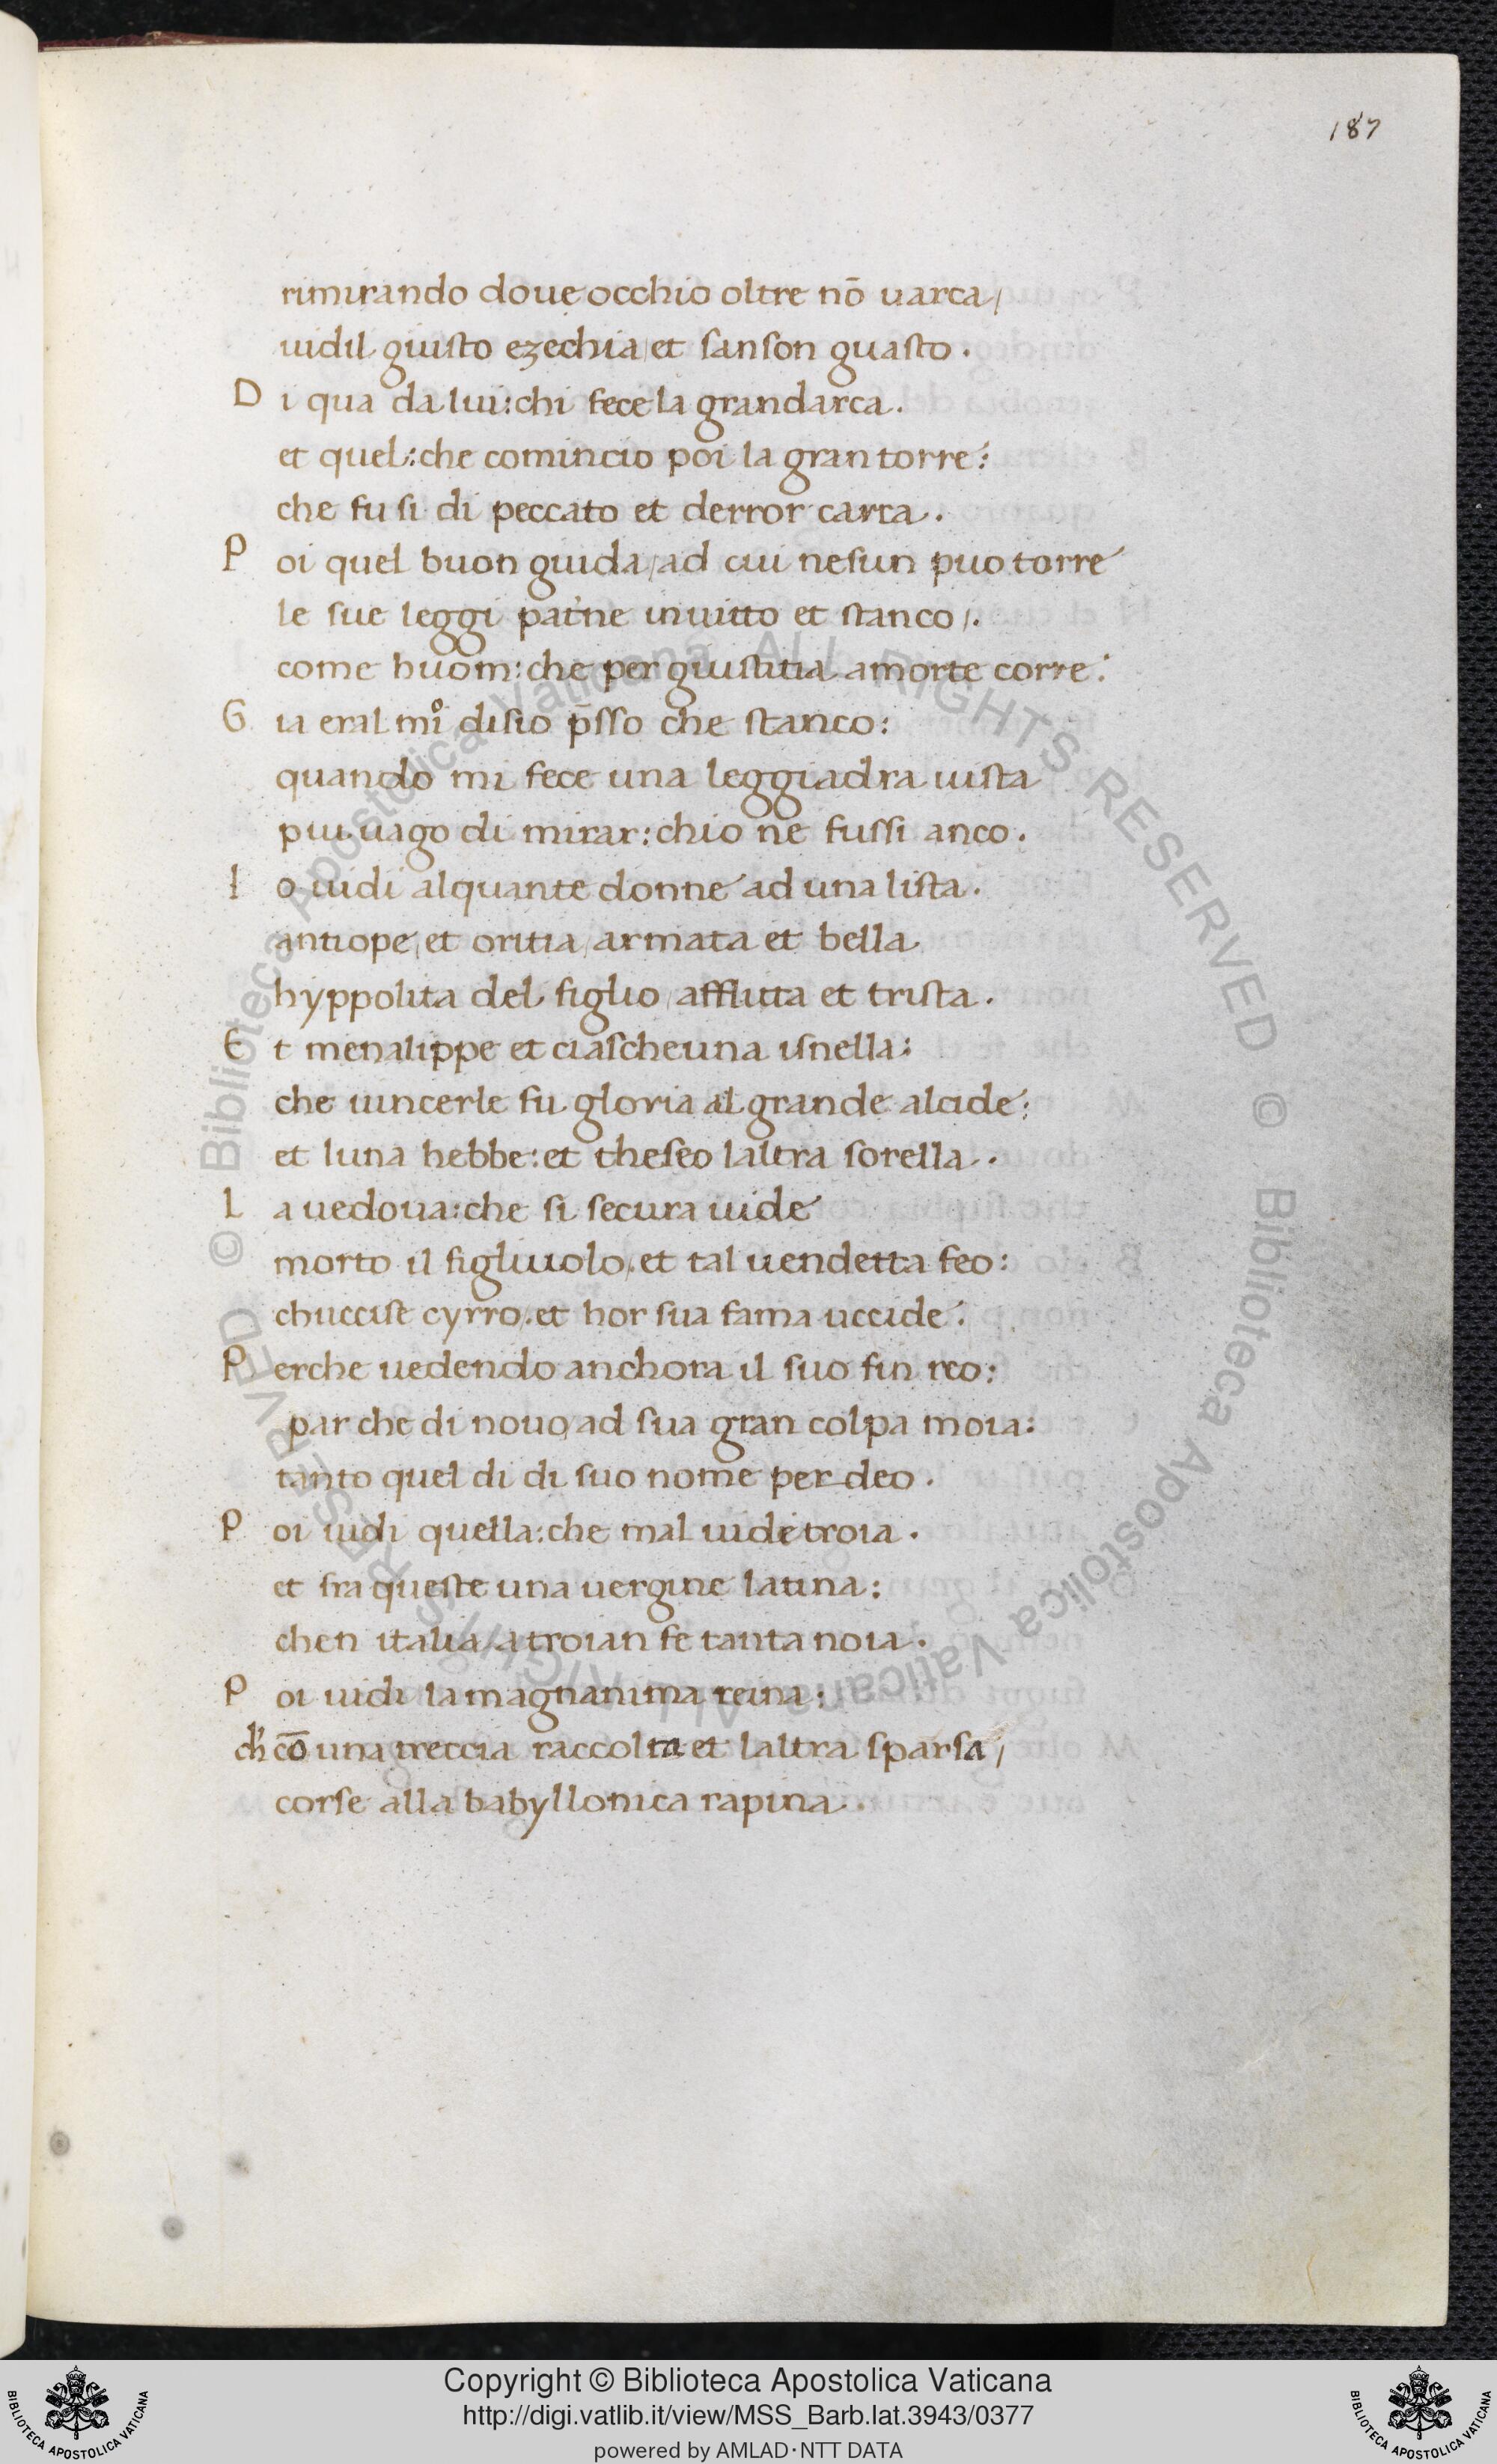 187
rimirando doue occhio oltre nō uarca/
uidil giusto ezechia/et sanson guasto.
D i qua da lui:chi fece la grandarca.
et quel:che comincio poi la gran torre:
che fu si di peccato et derror carca.
P oi quel buon giuda/ad cui nesun puo torre
le sue leggi pat'ne inuitto et stanco/.
come huom:che per giustitia amorte corre:
G ia eral mi° disio p̄sso che stanco:
quando mi fece una leggiadra uista
piu uago di mirar:chio ne fussi anco.
I o uidi alquante donne ad una lista.
antiope/et oritia/armata et bella
hyppolita del figlio/afflitta et trista.
E t menalippe et ciascheuna isnella:
che uincerle fu gloria al grande alcide:
et luna hebbe:et theseo laltra sorella.
L a uedoua:che si secura uide
morto il figliuolo/.et tal uendetta feo:
chuccise cyrro/.et hor sua fama uccide:
P erche uedendo anchora il suo fin reo:
par che di nouo/ad sua gran colpa moia:
tanto quel di di suo nome perdeo.
P oi uidi quella:che mal uide troia.
et fra queste una uergine latina:
chen italia/a troian fe tanta noia.
P oi uidi la magnanima reina:
ch' cō una treccia raccolta et laltra sparsa/
corse alla babyllonica rapina.
© Biblioteca Apostolica Vaticana ALL RIGHTS RESERVED © Biblioteca Apostolica Vaticana ALL RIGHTS RESERVED
Copyright © Biblioteca Apostolica Vaticana
http://digi.vatlib.it/view/MSS_Barb.lat.3943/0377
powered by AMLAD·NTT DATA
BIBLIOTECA APOSTOLICA VATICANA
BIBLIOTECA APOSTOLICA VATICANA